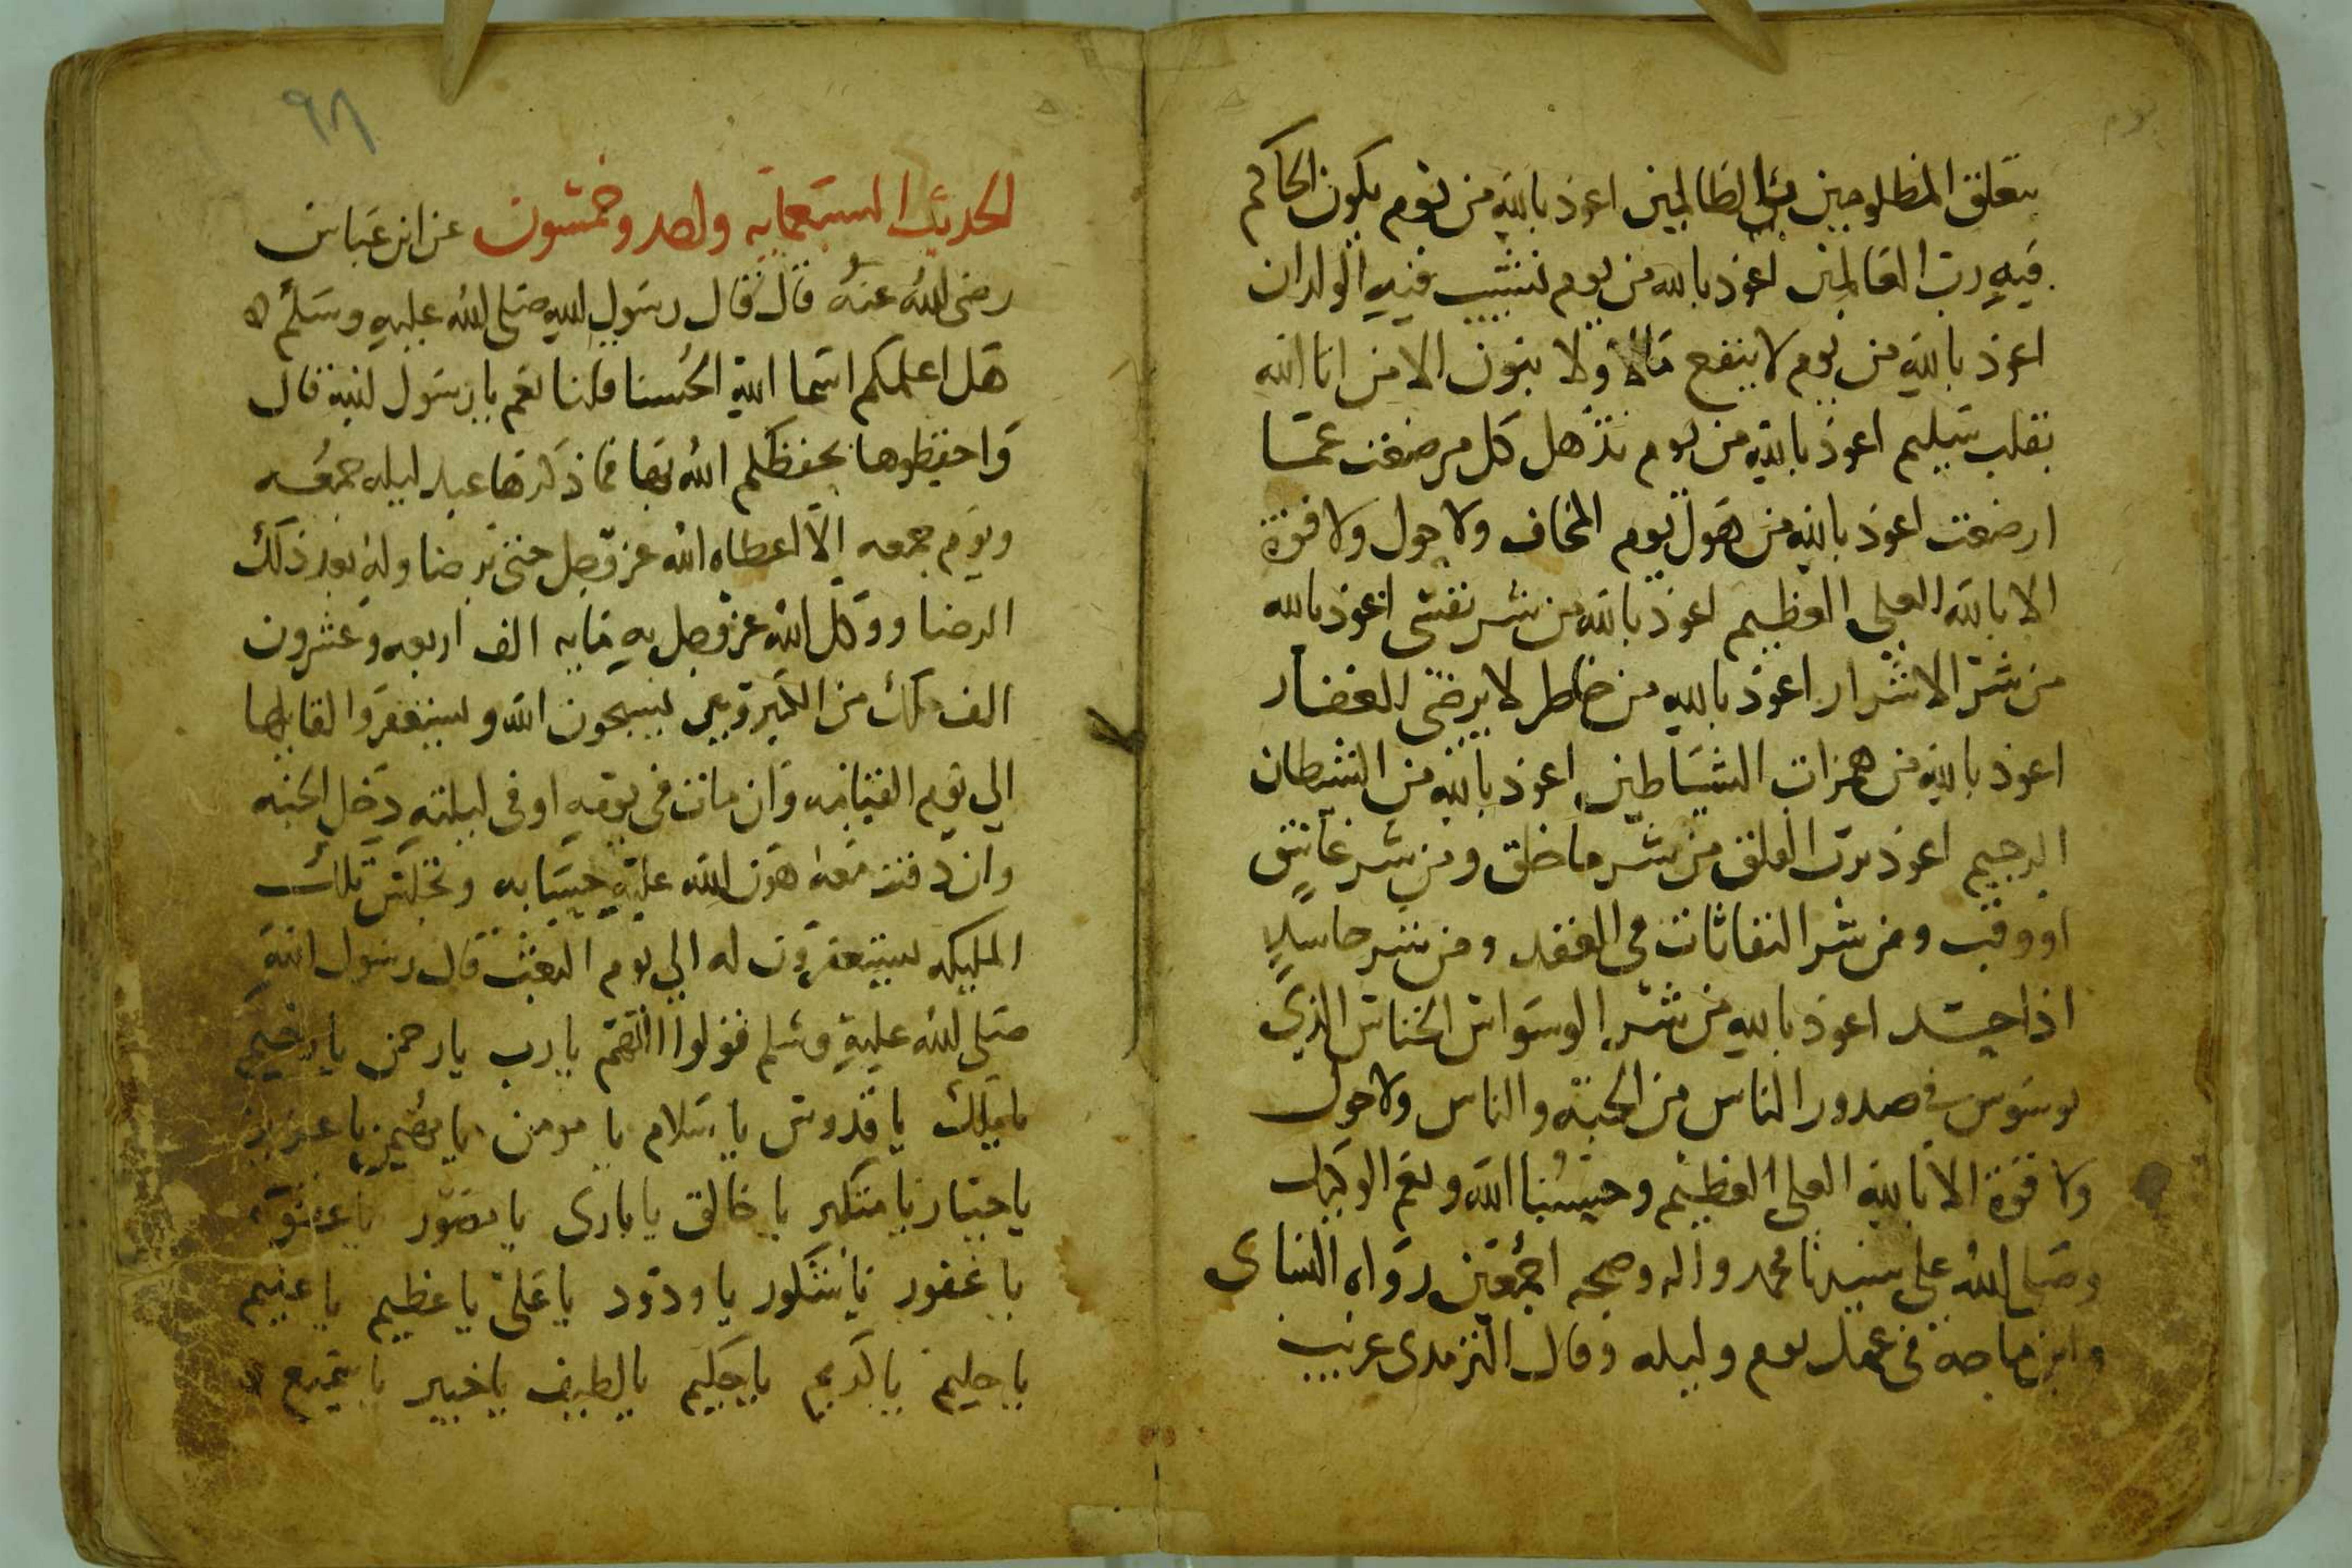 يتعلق المظلومين بالظالمين اعوذ بالله من يوم يكون الحاكم
فيه رب العالمين اعوذ بالله من يوم تشيب فيه الولدان
اعوذ بالله من يوم لا ينفع مالا ولا بنون الا من اتا الله
بقلب سليم اعوذ بالله من يوم تذهل كل مرضعت عما
ارضعت اعوذ بالله من هول يوم المخاف ولا حول ولا قوة
الا بالله العلي العظيم اعوذ بالله من شر نفسي اعوذ بالله
من شر الاشرار اعوذ بالله من خاطر لا يرضي الغفار
اعوذ بالله من همزات الشياطين اعوذ بالله من الشيطان
الرجيم اعوذ برب الفلق من شر ما خلق ومن شر غاسق
اذ وقب ومن شر النفاثات في العقد ومن شر حاسد
اذا حسد اعوذ بالله من شر الوسواس الخناس الذي
يوسوس في صدور الناس من الجنة والناس ولا حول
ولا قوة الا بالله العلي العظيم وحسبنا الله ونعم الوكيل
وصلى الله على سيدنا محمد واله وصحبه اجمعين رواه النساى
وابن ماجه في عمل يوم وليله وقال الترمدى غريب
٩٨
الحديث السبعمايه واحد وخمسون عن ابن عباس
رضى الله عنه قال قال رسول الله صلى الله عليه وسلم
هل اعلمكم اسما الله الحسنا قلنا نعم يا رسول الله قال
واحفظوها يحفظكم الله بها فما ذكرها عبد ليله جمعه
ويوم جمعه الا اعطاه الله عز وجل حتى يرضا وله بعد ذلك
الرضا ووكل الله عز وجل به مايه الف اربعه وعشرون
الف ملك من الكروبين يسبحون الله ويستغفروا لقايلها
الي يوم القيامه وان مات في يومه او في ليلته دخل الجنه
وان دفنت معه هون الله عليه حسابه وتجلس تلك
المليكه يستغفرون له الي يوم البعث قال رسول الله
صلى الله عليه وسلم قولوا اللهم يا رب يا رحمن يا رحيم
يا ملك يا قدوس يا سلام يا مومن يا مهيمن يا عزيز
يا جبار يا متكبر يا خالق يا بارى يا مصور يا عفو
يا غفور يا شكور يا ودود يا علي يا عظيم يا عليم
يا حليم يا كريم يا حكيم يا لطيف يا خبير يا سميع